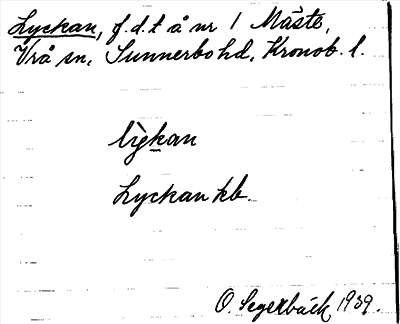 Lyckan, f.d.t å nr 1 Måste,
Vrå sn, Sunnerbo hd, Kronob. l.
Lyckan kb.
O. Segerbäck 1939.